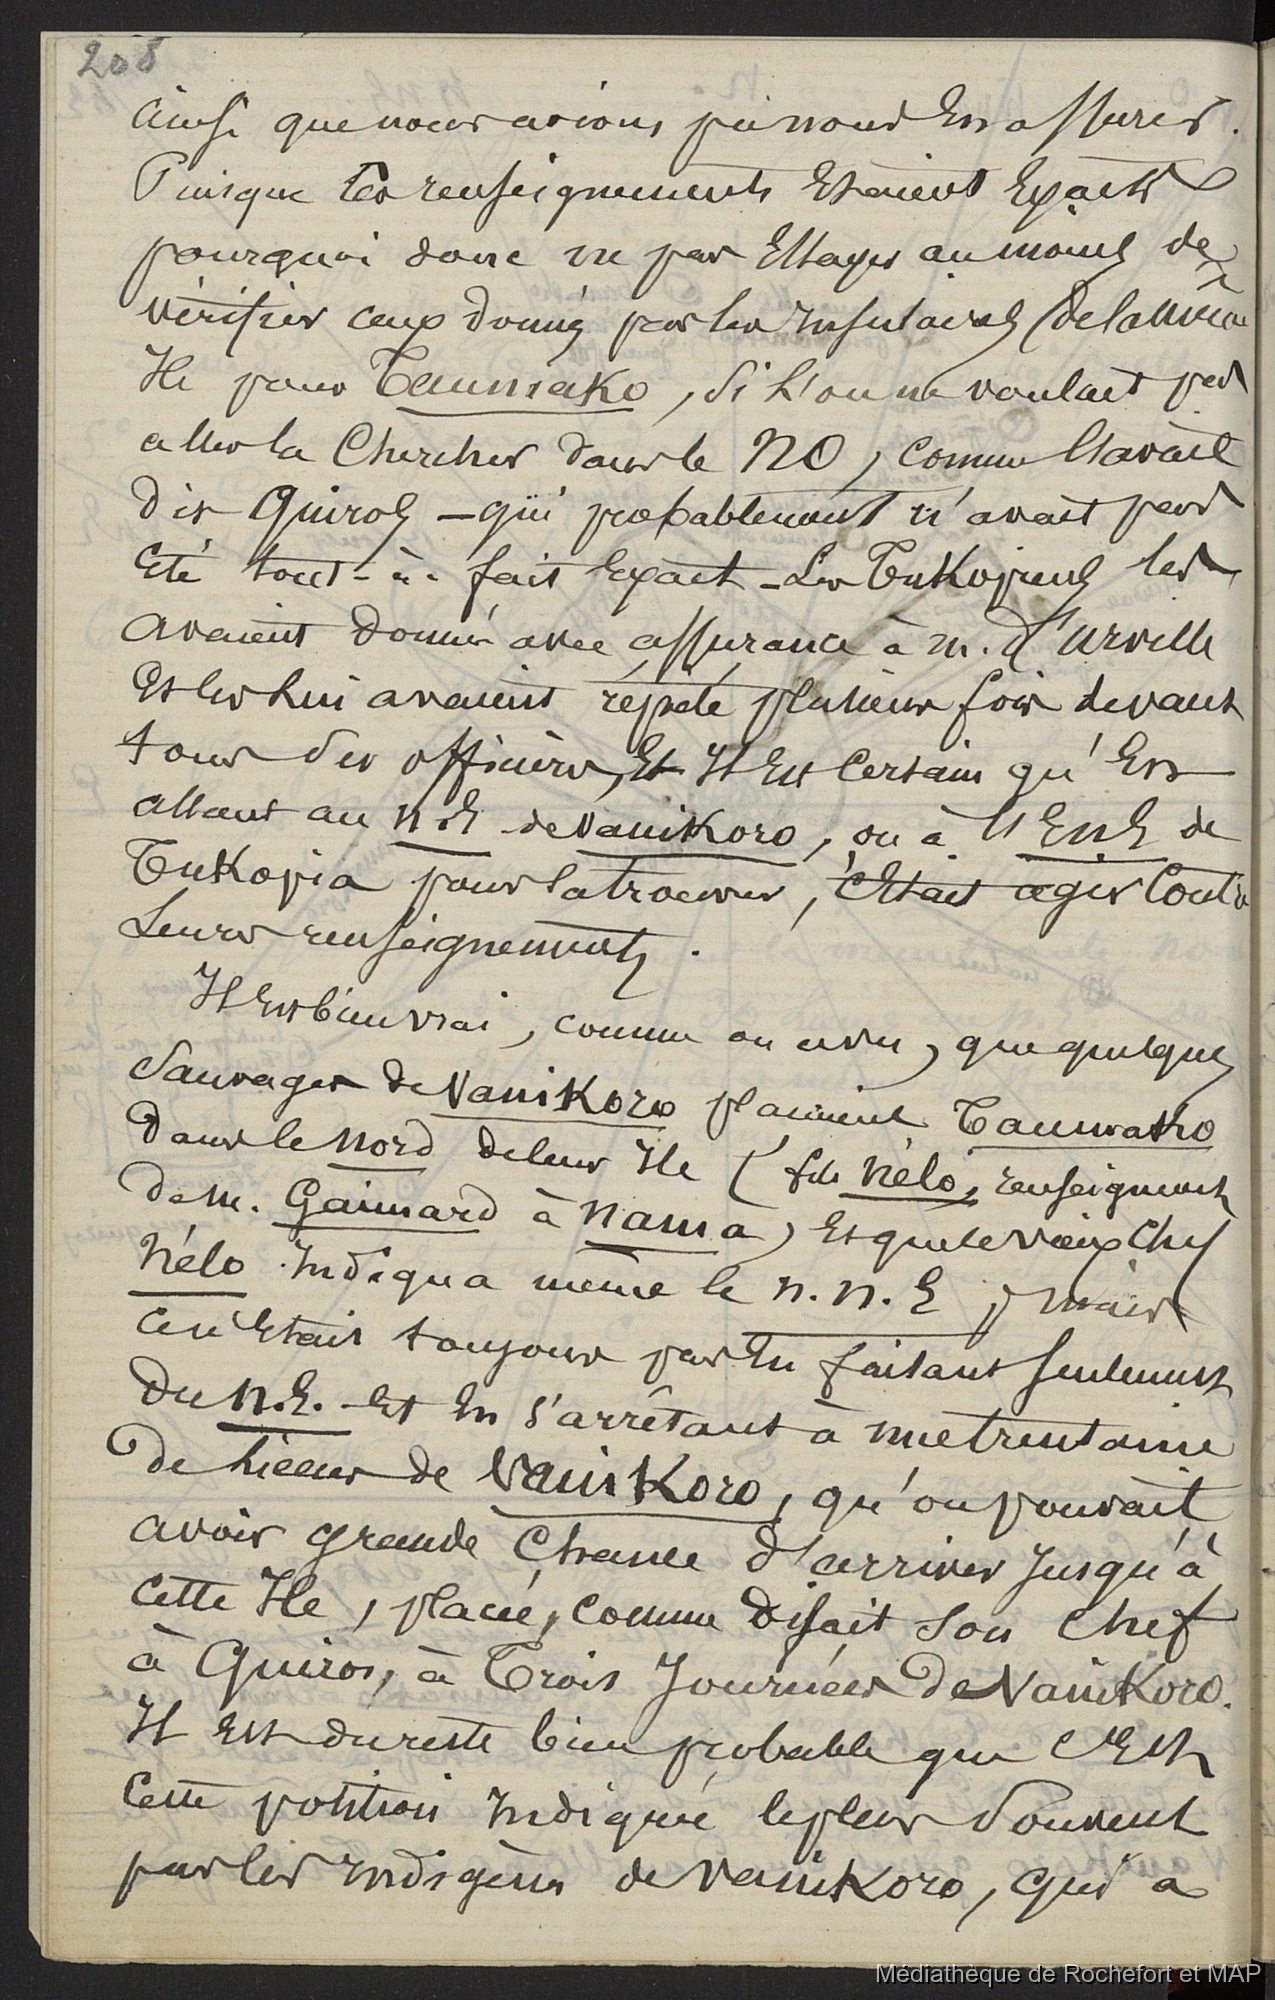 208
Ainsi que nous avions pu nous En assurer.
Puisque Ces renseignements Etaient Exacts
pourquoi donc ne pas Essayer au moins de
vérifier ceux donnés par les Insulaires (de la même
Ile pour Taumako, Si l'on ne voulait pas
aller la Chercher dans le NO, comme l'avait
dit Quiros – qui probablement n'avait pas
Eté tout-à-fait Exact – Les Tukopiens les
avaient donnés avec assurance à M. d'Urville
Et les lui avaient répété plusieurs fois devant
tous des officiers, Et Il Est Certain qu'En
allant au N.E de Vanikoro, ou à l'ENE de
Tukopia pour la trouver, C'Etait agir Contre
Leurs renseignements.
Il Est bien vrai, comme on a vu, que quelques
Sauvages de Vanikoro plaçaient Taumako
dans le Nord de leur Ile ( Nélo, renseignements
de M. Gaimard à Nama) Et que le vieux Chef
Nélo Indiqua même le N.N.E ; mais
Ce n'Etait toujours pas En faisant Seulement
du N.E. Et En S'arrêtant à une trentaine
de lieues de Vanikoro, qu'on pouvait
avoir grande Chance d'arriver Jusqu'à
Cette Ile, placée, Comme disait Son Chef
à Quiros, à Trois Journées de Vanikoro.
Il Est du reste bien probable que C'Est
Cette position Indiquée le plus Souvent
par les Indigènes de Vanikoro, qui a
Médiathèque de Rochefort et MAP